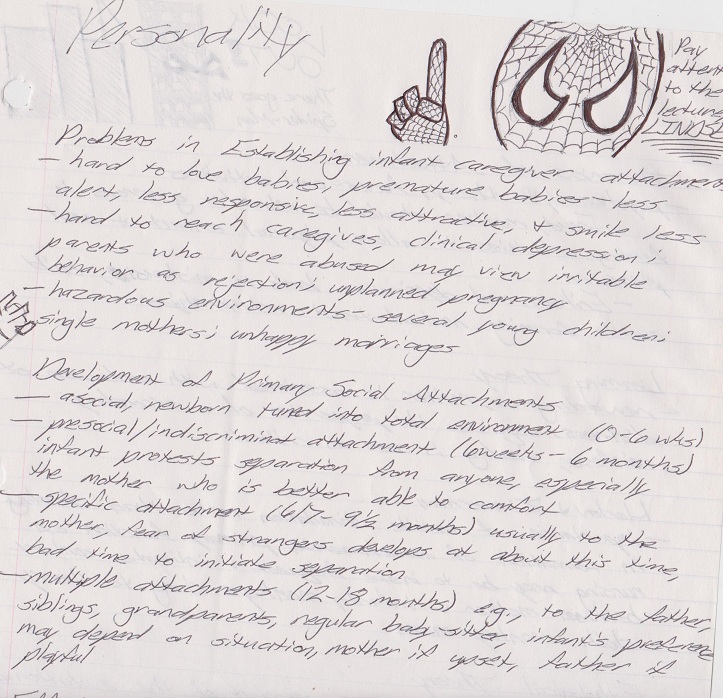 Personality
Pay
attent
to the
lecture
LINDS
Problems in Establishing infant caregiver attachment
- hard to love babies; premature babies - less
alert, less responsive, less attractive, & smile less
- hard to reach caregives, clinical depression;
parents who were abused may view irritable
behavior as rejection; unplanned pregnancy
- hazardous environments - several young children;
single mothers; unhappy marriages
Development of Primary Social Attachments
- asocial, newborn tuned into total environment (0-6 wks)
- presocial/indiscriminat attachment (6weeks - 6 months)
infant protests separation from anyone, especially
the mother who is better able to comfort
- specific attachment (6/7 - 9½ months) usually to the
mother, fear of strangers develops at about this time,
bad time to initiate separation
- multiple attachments (12-18 months) e.g., to the father,
siblings, grandparents, regular baby-sitter, infant's preference
may depend on situation, mother if upset, father if
playful